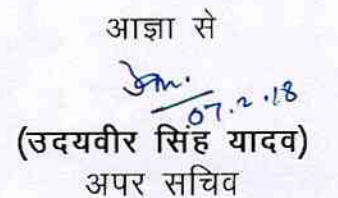 आज्ञा से
07.2.18
(उदयवीर सिंह यादव)
अपर सचिव